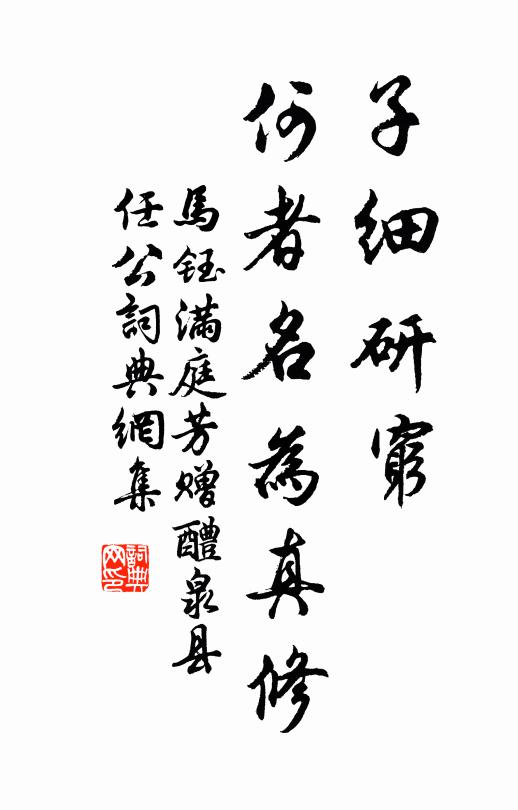 子细研窮
何者名為真修
馬鈺满庭芳赠醴泉县
任公詞典網集
詞典网印